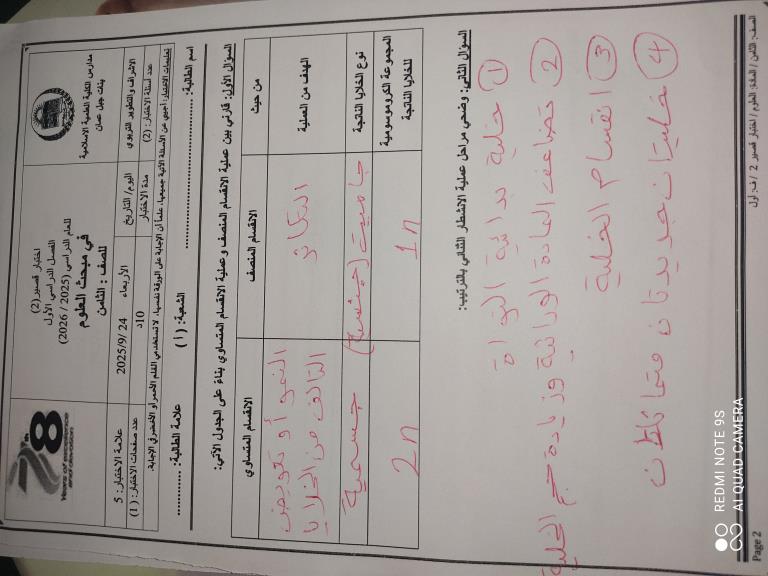 مدارس الكلية العلمية الاسلامية
بنات جبل عمان
اختبار قصير (2)
الفصل الدراسي الأول
للعام الدراسي (2025 / 2026)
في مبحث العلوم
للصف : الثامن
78
Years of excellence and devotion
الاشراف والتطوير التربوي
اليوم/ التاريخ
الأربعاء 24 /9/2025
علامة الاختبار: 5
عدد أسئلة الاختبار: (2)
مدة الاختبار
10د
عدد صفحات الاختبار: (1)
تعليمات الاختبار: أجيبي عن الأسئلة الآتية جميعها، علماً أن الإجابة على الورقة نفسها، لا تستخدمي القلم الأحمر أو الأخضر في الإجابة.
اسم الطالبة: .................... الشعبة: ( أ ) علامة الطالبة: ..........
السؤال الأول: قارني بين عملية الانقسام المنصف وعملية الانقسام المتساوي بناءً على الجدول الآتي:
من حيث
الانقسام المنصف
الانقسام المتساوي
الهدف من العملية
التكاثر
النمو أو تعويض
التالف من الخلايا
نوع الخلايا الناتجة
جاميت (جنسية)
جسمية
المجموعة الكروموسومية للخلايا الناتجة
1n
2n
السؤال الثاني: وضحي مراحل عملية الانشطار الثنائي بالترتيب:
1 خلية بدائية النواة
2 تضاعف المادة الوراثية وزيادة حجم الخلية
3 انقسام الخلية
4 خليتان جديدتان متماثلتان
الصف: الثامن / المادة: العلوم / اختبار قصير 2 / ف: أول
Page 2
REDMI NOTE 9S
AI QUAD CAMERA